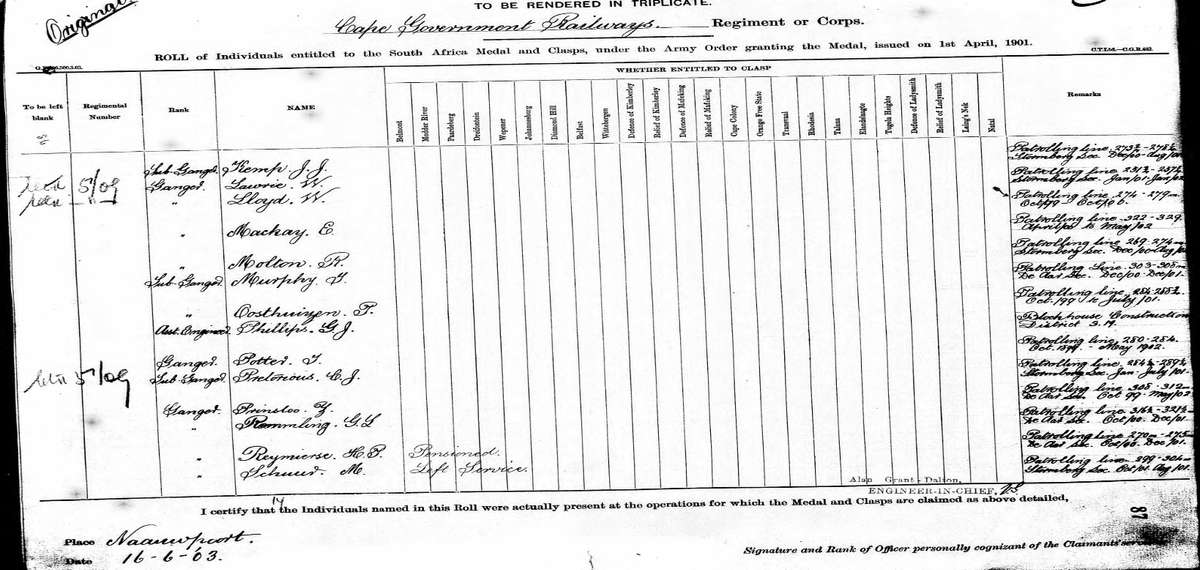 Original
TO BE RENDERED IN TRIPLICATE.
Cape Government Railways. Regiment or Corps.
ROLL of Individuals entitled to the South Africa Medal and Clasps, under the Army Order granting the Medal, issued on 1st April, 1901.
To be left blank
Regimental Number
Rank
NAME
WHETHER ENTITLED TO CLASP
Belmont
Modder River
Paardeberg
Dreifontein
Wepener
Johannesburg
Diamond Hill
Belfast
Wittebergen
Defence of Kimberley
Relief of Kimberley
Defence of Mafeking
Relief of Mafeking
Cape Colony
Orange Free State
Transvaal
Rhodesia
Talana
Elandslaagte
Tugela Heights
Defence of Ladysmith
Relief of Ladysmith
Laing's Nek
Natal
Remarks
Sub-Ganger. Kemp J.J. Patrolling line Stormberg Sec. Dec/00 - Aug/01
5/09 Ganger. Lawrie. W. Patrolling line Stormberg Sec. Jan/01 - Jan/02
" Lloyd. W. Patrolling line 274 - 279 Oct/99 Oct/00.
" Mackay. E. Patrolling line 322 - 329 to May/02
" Molton. R. Patrolling line 269 - 274 Stormberg Sec.
Sub-Ganger. Murphy. T. Patrolling Line 303 - 308 De Aar Sec. Dec/00 - Dec/01.
" Oosthuizen. P. Patrolling line Oct. 99 to July/01.
Asst. Engineer. Phillips. G.J. Blockhouse Construction District
Ganger. Potter. T. Patrolling line 280 - 284. Oct. 1899 - May 1902.
5/09 Sub-Ganger. Pretorious. C.J. Patrolling line Stormberg Sec. Jan - July/01.
Ganger. Prinsloo. Z. Patrolling line 308 - 312 De Aar Sec. Oct 99 - May/02
" Remmling. G.L. Patrolling line De Aar Sec. Oct/00. Dec/01
" Reymierse. H.P. Pensioned. Patrolling line 270 - 275 De Aar Sec. Oct/00. Dec/01.
" Schuur. M. Left Service. Patrolling line 299 - 304 Stormberg Sec. Oct/01. Aug/01.
Alan Grant-Dalton,
ENGINEER-IN-CHIEF,
14
I certify that the Individuals named in this Roll were actually present at the operations for which the Medal and Clasps are claimed as above detailed,
87
Place Naauwpoort.
Date 16-6-'03.
Signature and Rank of Officer personally cognizant of the Claimants' services